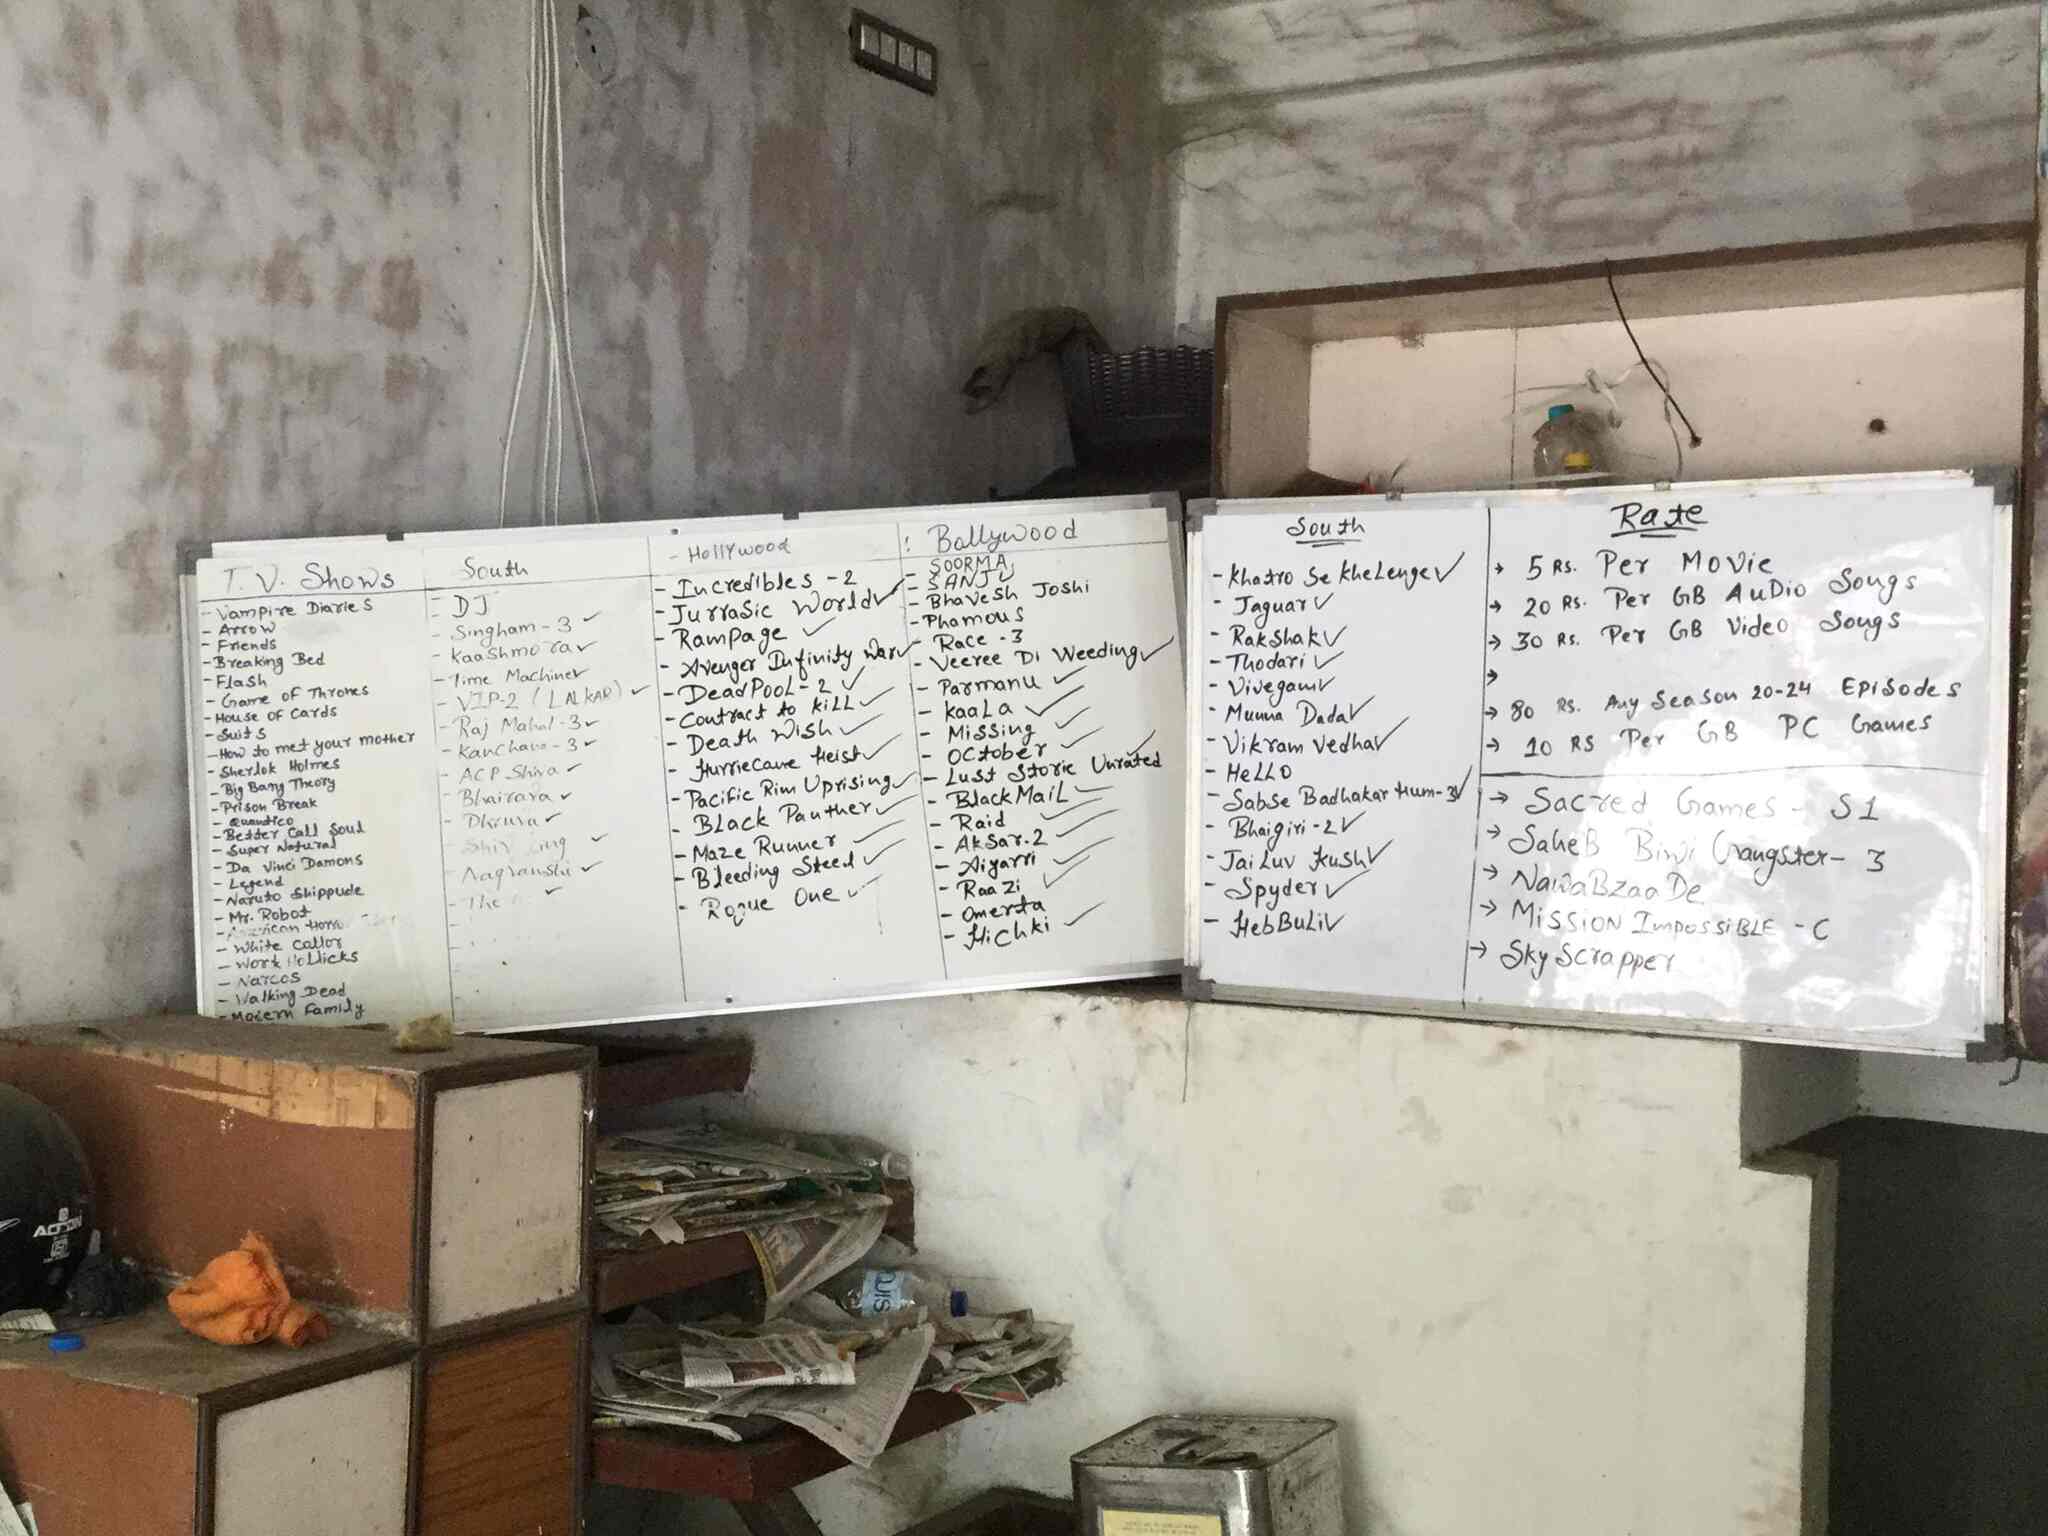 T.V. Shows
- Vampire Diaries
- Arrow
- Friends
- Breaking Bed
- Flash
- Game of Thrones
- House of Cards
- Suits
- How to met your mother
- Sherlok Holmes
- Big Bang Theory
- Prison Break
- Quantico
- Better Call Soul
- Super Natural
- Da Vinci Damons
- Legend
- Naruto Shippude
- Mr. Robot
- American Horror
- White Callor
- Work Hollicks
- Narcos
- Walking Dead
- Modern Family
South
- DJ
- Singham - 3 ✓
- Kaashmora ✓
- Time Machine ✓
- VIP-2 (LALKAR) ✓
- Raj Mahal - 3 ✓
- Kanchana - 3 ✓
- ACP Shiva ✓
- Bhairava ✓
- Dhruva ✓
- Shiv Ling ✓
- Nagvanshi ✓
- The ✓
- Hollywood
- Incredibles - 2
- Jurrasic World ✓
- Rampage ✓
- Avenger Infinity War ✓
- DeadPool - 2 ✓
- Contract to Kill ✓
- Death Wish ✓
- Hurriecane Heist ✓
- Pacific Rim Uprising ✓
- Black Panther ✓
- Maze Runner ✓
- Bleeding Steel ✓
- Rogue One ✓
: Bollywood
- SOORMA
- SANJU
- Bhavesh Joshi
- Phamous
- Race - 3
- Veeree Di Weeding ✓
- Parmanu ✓
- Kaala ✓
- Missing ✓
- October ✓
- Lust Storie Unrated ✓
- BlackMail ✓
- Raid ✓
- Aksar.2 ✓
- Aiyarri ✓
- Raazi ✓
- Omerta
- Hichki ✓
South
- Khatro Se Khelenge ✓
- Jaguar ✓
- Rakshak ✓
- Thodari ✓
- Vivegam ✓
- Munna Dada ✓
- Vikram Vedha ✓
- Hello
- Sabse Badhakar Hum-3 ✓
- Bhaigiri - 2 ✓
- Jai Luv Kush ✓
- Spyder ✓
- HebBuLi ✓
Rate
→ 5 Rs. Per Movie
→ 20 Rs. Per GB Audio Songs
→ 30 Rs. Per GB Video Songs
→
→ 80 Rs. Any Season 20-24 Episodes
→ 10 RS Per GB PC Games
→ Sacred Games - S1
→ Saheb Biwi Gangster - 3
→ NawaBzaaDe
→ Mission Impossible - C
→ Sky Scrapper